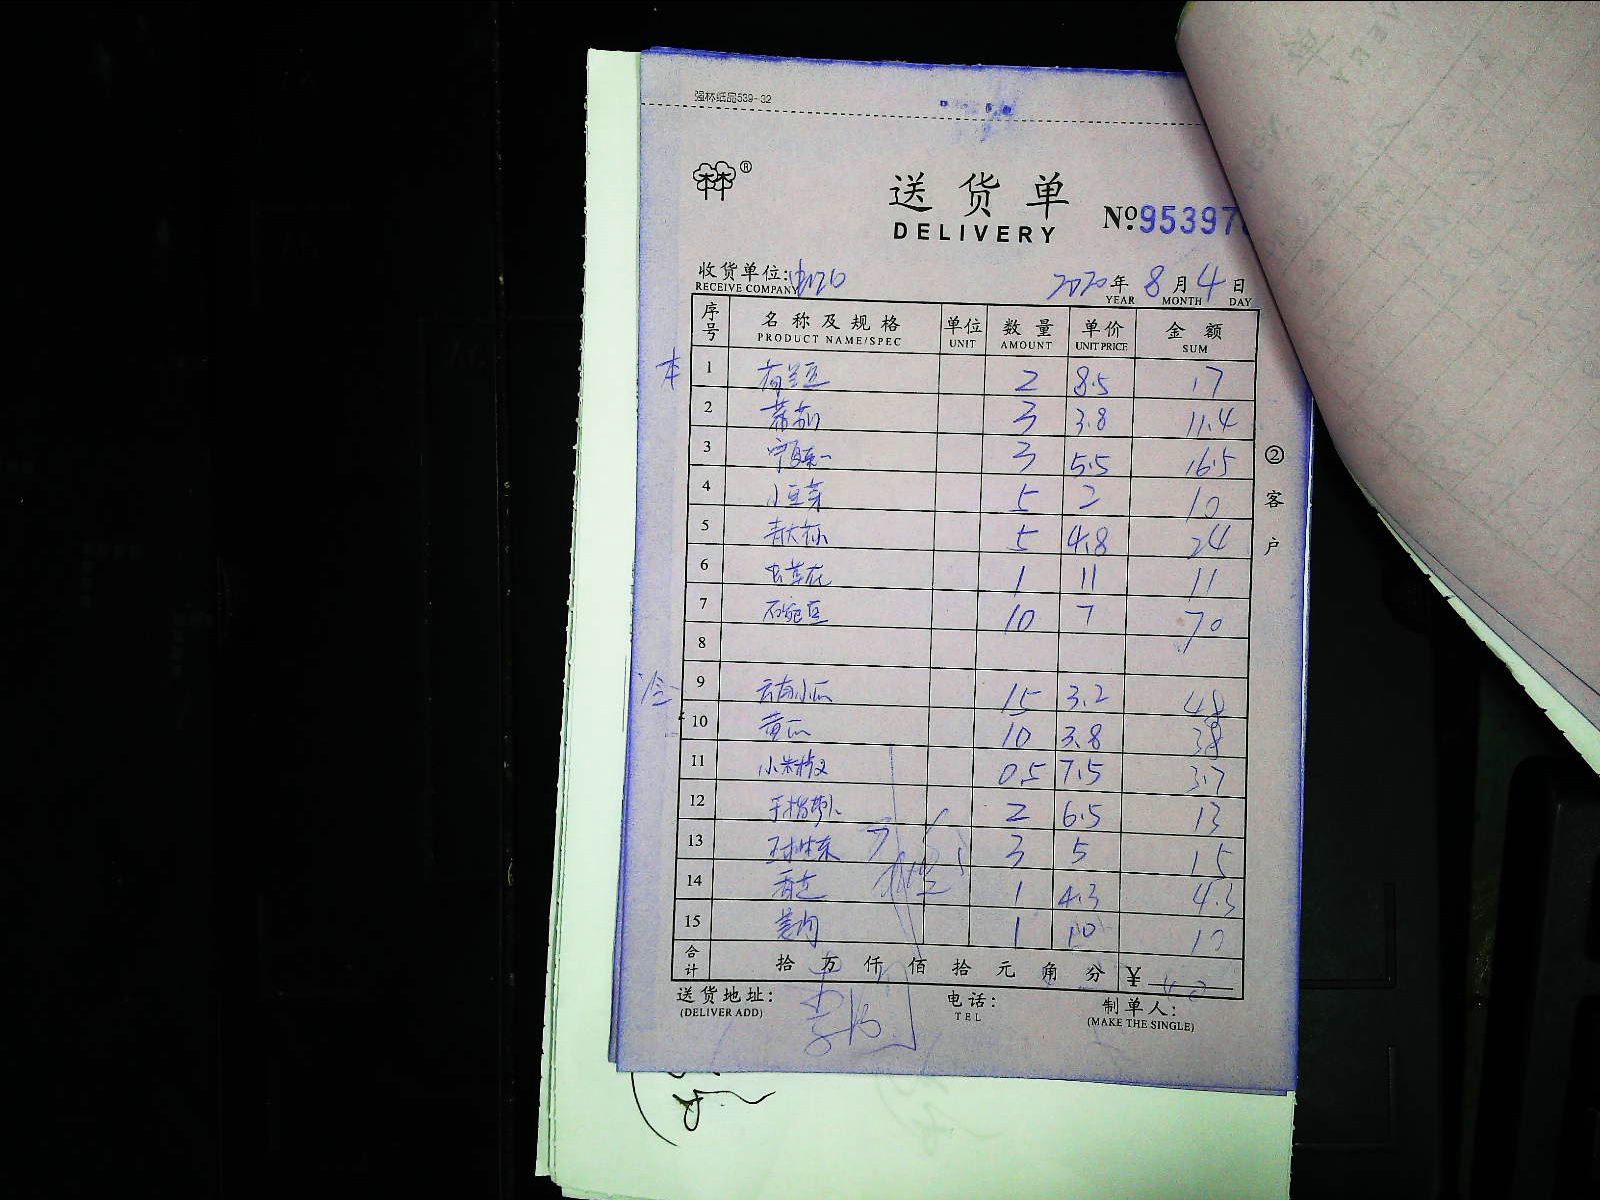 强林纸品539-32
®
送货单
DELIVERY
№:95397
收货单位:
RECEIVE COMPANY
2020年 8月 4日
YEAR MONTH DAY
序号 名称及规格 单位 数量 单价 金额
PRODUCT NAME/SPEC UNIT AMOUNT UNIT PRICE SUM
本 1 荷兰豆 2 8.5 17
2 蕃茄 3 3.8 11.4
3 3 5.5 16.5
4 小豆芽 5 2 10
5 5 4.8 24
6 虫草花 1 11 11
7 10 7 70
8
9 15 3.2 48
10 黄瓜 10 3.8 38
11 小米椒 0.5 7.5 3.7
12 手指萝卜 2 6.5 13
13 3 5 15
14 1 4.3 4.3
15 1 10 10
合计 拾 万 仟 佰 拾 元 角 分 ¥
送货地址: 电话: 制单人:
(DELIVER ADD) TEL (MAKE THE SINGLE)
②客户